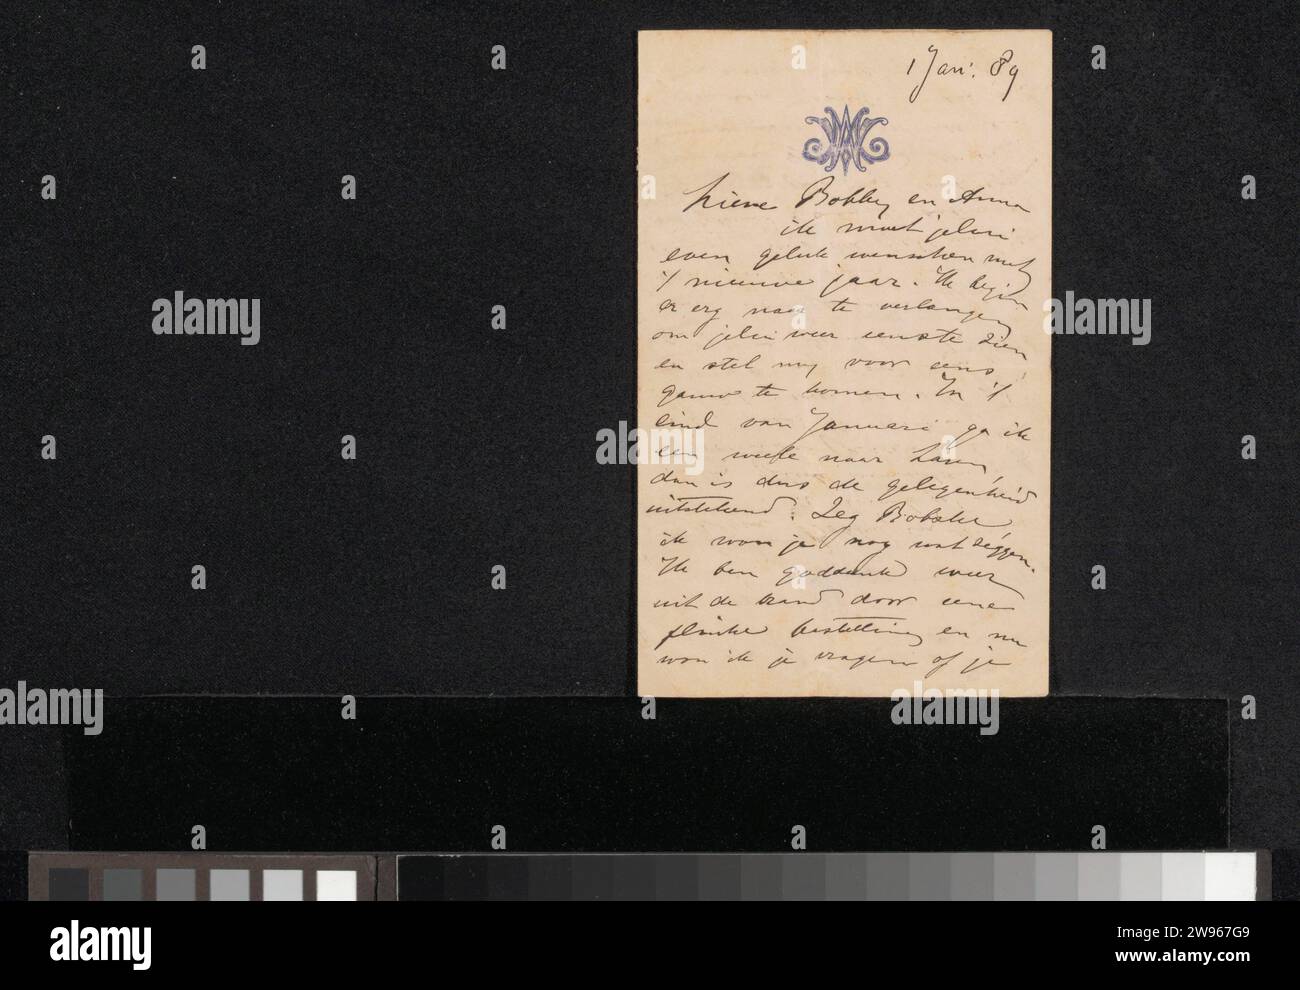 1 Jan. 89
Lieve Bobby en Anna
ik moet jelui
even geluk wenschen met
't nieuwe jaar. Ik begin
er erg naar te verlangen
om jelui weer eens te zien
en stel mij voor eens
gauw te komen. In 't
eind van Januari ga ik
een week naar Laren
dan is dus de gelegenheid
uitstekend. Zeg Bobske
ik wou je nog wat zeggen.
Ik ben goddank weer
uit de brand door eene
flinke bestelling en nu
wou ik je vragen of je
alamy
alamy
alamy
alamy
alamy
Image ID: 2W967G9
www.alamy.com